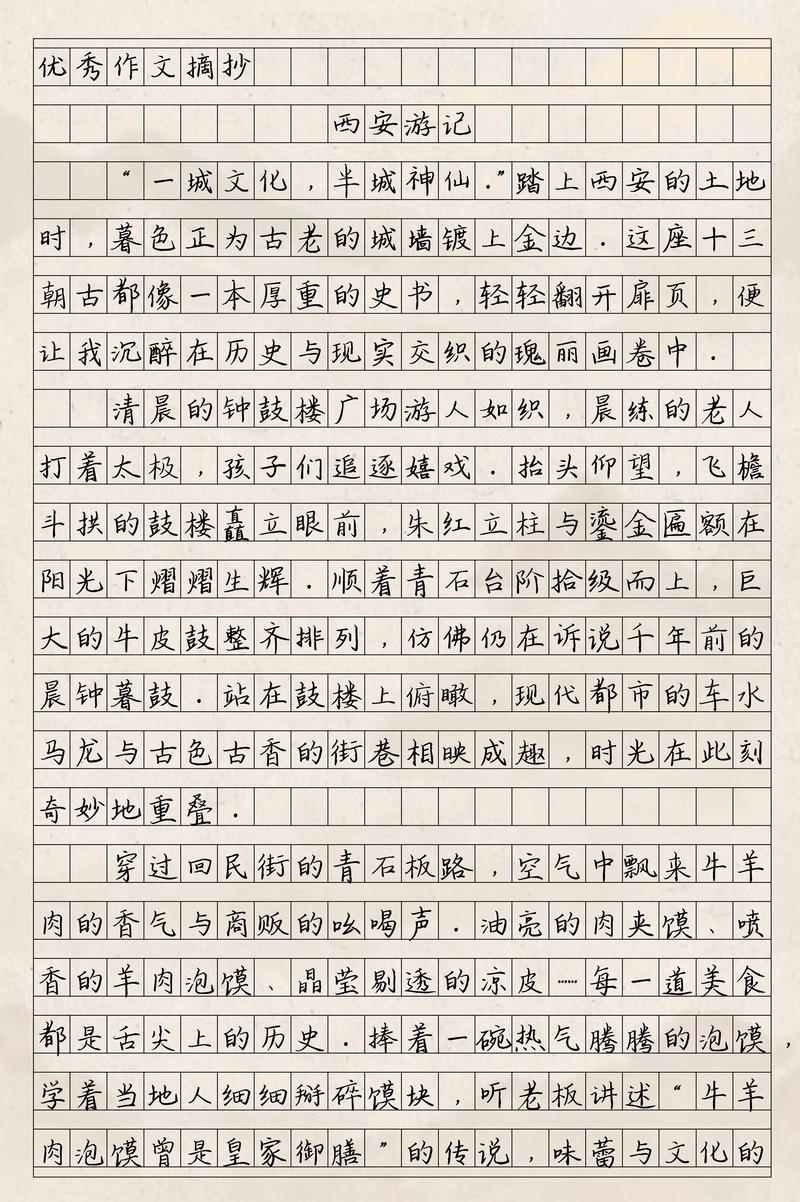 优秀作文摘抄
西安游记
“一城文化,半城神仙.”踏上西安的土地
时,暮色正为古老的城墙镀上金边.这座十三
朝古都像一本厚重的史书,轻轻翻开扉页,便
让我沉醉在历史与现实交织的瑰丽画卷中.
清晨的钟鼓楼广场游人如织,晨练的老人
打着太极,孩子们追逐嬉戏.抬头仰望,飞檐
斗拱的鼓楼矗立眼前,朱红立柱与鎏金匾额在
阳光下熠熠生辉.顺着青石台阶拾级而上,巨
大的牛皮鼓整齐排列,仿佛仍在诉说千年前的
晨钟暮鼓.站在鼓楼上俯瞰,现代都市的车水
马龙与古色古香的街巷相映成趣,时光在此刻
奇妙地重叠.
穿过回民街的青石板路,空气中飘来牛羊
肉的香气与商贩的吆喝声.油亮的肉夹馍、喷
香的羊肉泡馍、晶莹剔透的凉皮……每一道美食
都是舌尖上的历史.捧着一碗热气腾腾的泡馍,
学着当地人细细掰碎馍块,听老板讲述“牛羊
肉泡馍曾是皇家御膳”的传说,味蕾与文化的